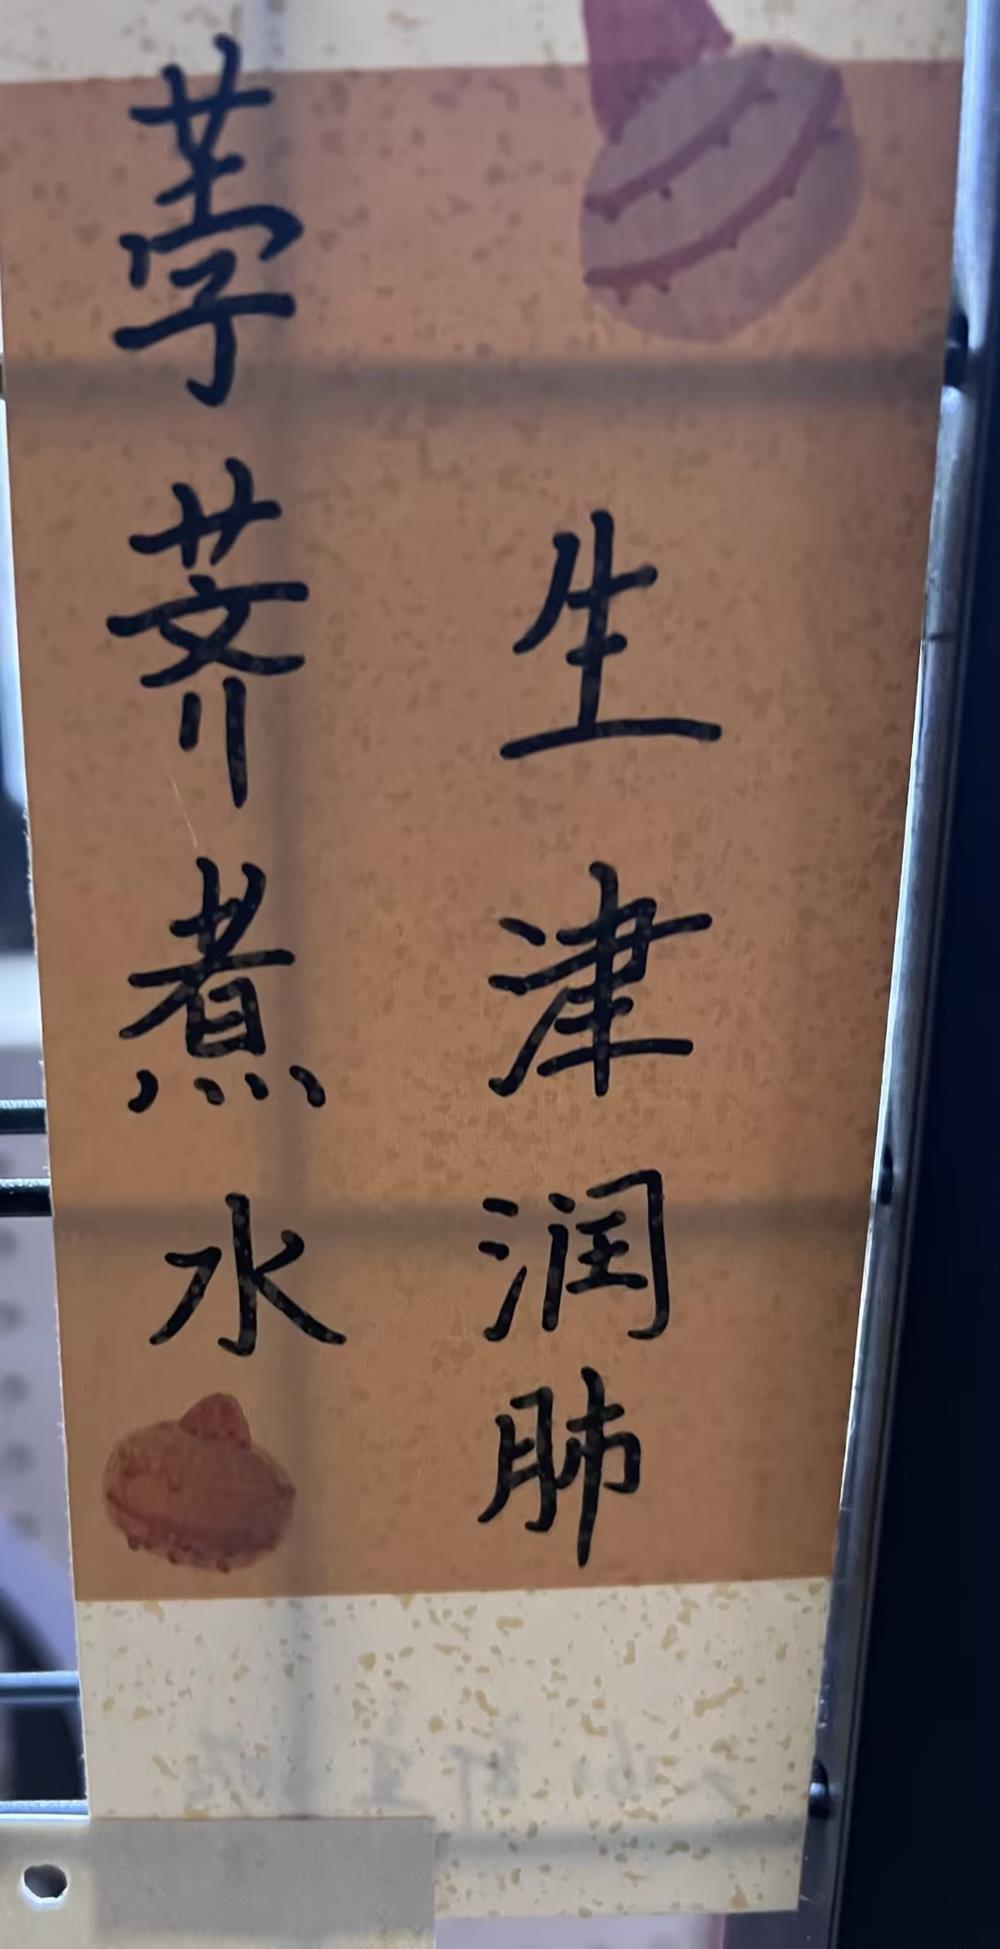 荸荠煮水
生津润肺